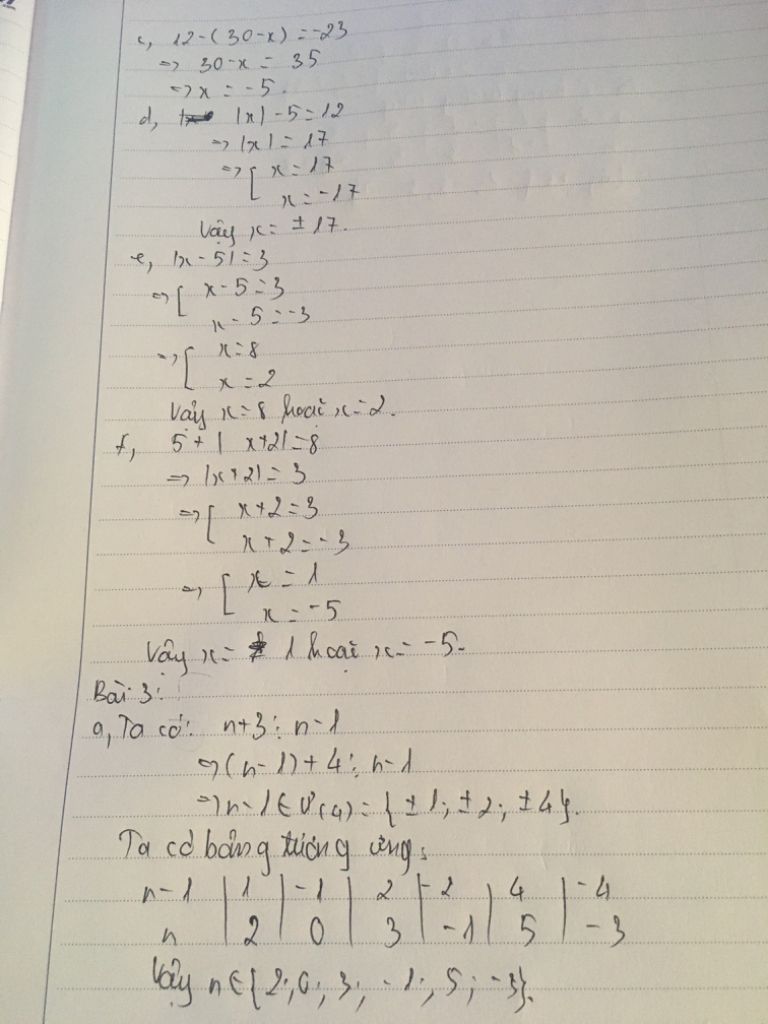 c, 12-(30-x)=-23
=> 30-x = 35
=> x = -5.
d, |x|-5=12
=> |x| = 17
=> [ x = 17
x = -17
Vậy x = ± 17.
e, |x-5|=3
=> [ x-5=3
x-5=-3
=> [ x=8
x=2
Vậy x=8 hoặc x=2.
f, 5+| x+2|=8
=> |x+2| = 3
=> [ x+2=3
x+2=-3
=> [ x = 1
x = -5
Vậy x= 1 hoặc x= -5.
Bài 3:
a, Ta có: n+3 ⋮ n-1
=> (n-1)+4 ⋮ n-1
=> n-1 ∈ Ư(4) = { ±1; ±2; ±4}.
Ta có bảng tương ứng:
n-1 | 1 | -1 | 2 | -2 | 4 | -4
n | 2 | 0 | 3 | -1 | 5 | -3
Vậy n ∈ {2; 0; 3; -1; 5; -3}.